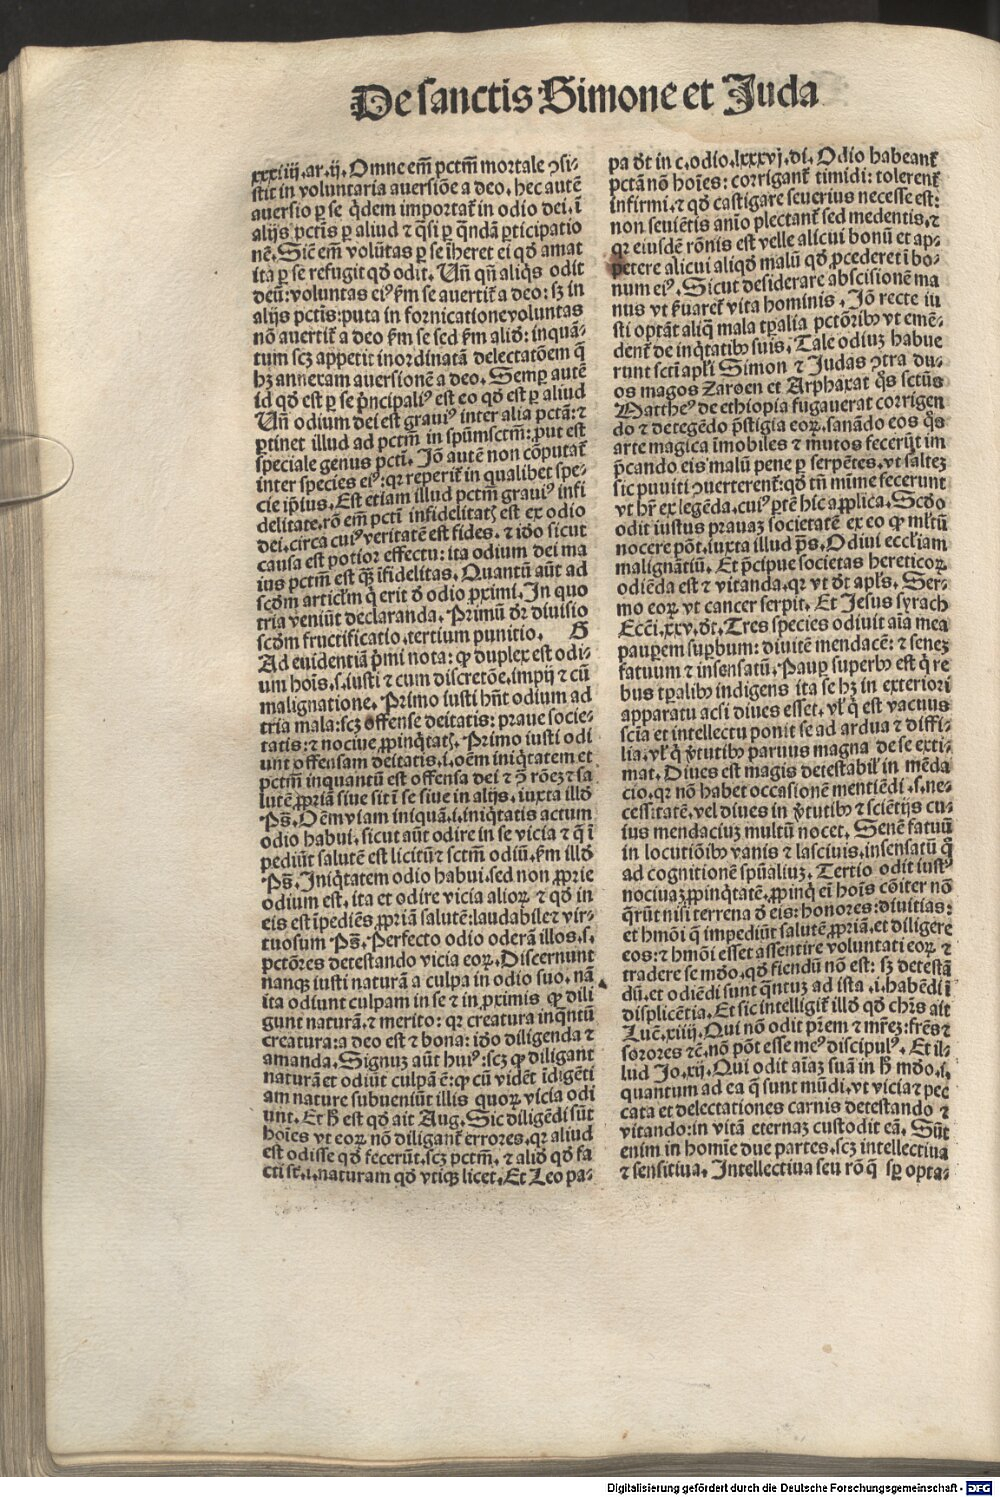 De sanctis Simone et Juda
xxxiiij. ar. ij. Omne em̄ pctm̄ mortale ꝯsi-
stit in voluntaria auersiōe a deo. hec autē
auersio ꝑ se q̇dem importat᷑ in odio dei. ī
alijs pctīs ꝑ aliud ⁊ q̄si ꝑ q̄ndā ꝑticipatio
nē. Sic̄ em̄ volūtas ꝑ se īheret ei qd̓ amat
ita ꝑ se refugit qd̓ odit. Vn̄ qn̄ aliq̇s odit
deū: voluntas eiꝰ ẜm se auertit᷑ a deo: sꝫ in
alijs pctīs: puta in fornicatione voluntas
nō auertit᷑ a deo ẜm se sed ẜm aliđ: inquā-
tum scꝫ appetit inordinatā delectatōem q̄
hꝫ annexam auersionē a deo. Semꝑ autē
id qd̓ est ꝑ se p̄ncipaliꝰ est eo qd̓ est ꝑ aliud
Vn̄ odium dei est grauiꝰ inter alia pctā: ⁊
ꝑtinet illud ad pctm̄ in spūmsctm̄: ꝓut est
speciale genus pcti. Jō autē non cōputat᷑
inter species eiꝰ: qꝛ reperit᷑ in qualibet spe-
cie ip̄ius. Est etiam illud pctm̄ grauiꝰ infi
delitate. rō em̄ pcti infidelitatꝭ est ex odio
dei. circa cuiꝰ veritatē est fides. ⁊ iđo sicut
causa est potior effectu: ita odium dei ma
ius pctm̄ est qꝫ̄ īfidelitas. Quantū aūt ad
scđm articl̓m q̄ erit đ odio ꝓximi. In quo
tria veniūt declaranda. Primū đr diuisio
scđm fructificatio. tertium punitio. H̄
Ad euidentiā p̄mi nota: ꝙ duplex est odi-
um hoīs. s. iusti ⁊ cum discretōe. impij ⁊ cū
malignatione. Primo iusti hn̄t odium ad
tria mala: scꝫ offense deitatis: praue socie-
tatis: ⁊ nociue ꝓpinq̇tatꝭ. Primo iusti odi
unt offensam deitatis. i. oēm iniq̇tatem et
pctm̄ inquantū est offensa dei ⁊ ꝯ̄ rōeꝫ ⁊ sa
lutē ꝓpriā siue sit ī se siue in alijs. iuxta illđ
Ps̄. Oēm viam iniquā. i. iniq̇tatis actum
odio habui. sicut aūt odire in se vicia ⁊ q̄ ī
pediūt salutē est licitū ⁊ sctm̄ odiū. ẜm illđ
Ps̄. Iniq̇tatem odio habui. sed non ꝓprie
odium est. ita et odire vicia alioꝝ ⁊ qd̓ in
eis est īpediēs ꝓpriā salutē: laudabile ⁊ vir-
tuosum Ps̄. Perfecto odio oderā illos. s.
pctōres detestando vicia eoꝝ. Discernunt
nanqꝫ iusti naturā a culpa in odio suo. nā
ita odiunt culpam in se ⁊ in ꝓximis ꝙ dili
gunt naturā. ⁊ merito: qꝛ creatura inq̄ntū
creatura: a deo est ⁊ bona: iđo diligenda ⁊
amanda. Signuꝫ aūt huiꝰ: scꝫ ꝙ diligant
naturā et odiūt culpā ē: ꝙ cū vidēt īdigēti
am nature subueniūt illis quoꝝ vicia odi
unt. Et h̄ est qd̓ ait Aug. Sic diligēdi sūt
hoīes vt eoꝝ nō diligant᷑ errores. qꝛ aliud
est odisse qd̓ fecerūt. scꝫ pctm̄. ⁊ aliđ qd̓ fa
cti st̄. i. naturam qd̓ vtiqꝫ licet. Et Leo pa-
pa đt in c. odio. lxxxvj. di. Odio habeant᷑
pctā nō hoīes: corrigant᷑ timidi: tolerent᷑
infirmi. ⁊ qd̓ castigare seuerius necesse est:
non seuiētis aīo plectant᷑ sed medentis. ⁊
qꝛ eiusdē rōnis est velle alicui bonū et ap-
petere alicui aliqd̓ malū qd̓ ꝓcederet ī bo-
num eiꝰ. Sicut desiderare abscisionē ma
nus vt ẜuaret᷑ vita hominis. Jō recte iu
sti optāt aliq̄ mala tꝑalia pctōribꝰ vt emē-
dent᷑ de inq̇tatibꝰ suis. Tale odiuꝫ habue
runt sctī apl̓i Simon ⁊ Judas ꝯtra du-
os magos Zaroen et Arphaxat q̄s sctūs
Mattheꝰ de ethiopia fugauerat corrigen
do ⁊ detegēdo p̄stigia eoꝝ. sanādo eos q̄s
arte magica īmobiles ⁊ mutos fecerūt im
p̄cando eis malū pene ꝑ serpētes. vt salteꝫ
sic puuiti ꝯuerterent᷑: qd̓ tn̄ mīme fecerunt
vt hr̄ ex legēda. cuiꝰ ꝑtē hic applica. Scđo
odit iustus prauaꝫ societatē ex eo ꝙ ml̓tū
nocere pōt. iuxta illud ps̄. Odiui eccl̓iam
malignātiū. Et p̄cipue societas hereticoꝝ
odiēda est ⁊ vitanda. qꝛ vt đt apl̓s. Ser-
mo eoꝝ vt cancer serpit. Et Jesus syrach
Ecc̄i. xxv. đt. Tres species odiuit aīa mea
pauꝑem suꝑbum: diuitē mendacē: ⁊ seneꝫ
fatuum ⁊ insensatū. Pauꝑ superbꝰ est q̇ re
bus tꝑalibꝰ indigens ita se hꝫ in exteriori
apparatu acsi diues esset. vl̓ q̇ est vacuus
scīa et intellectu ponit se ad ardua ⁊ diffi-
lia. vl̓ q̇ v̓tutibꝰ paruus magna de se exti-
mat. Diues est magis detestabil̓ in mēda
cio. qꝛ nō habet occasionē mentiēdi. s. ne-
cessitatē. vel diues in v̓tutibꝰ ⁊ sciētijs cu-
ius mendaciuꝫ multū nocet. Senē fatuū
in locutiōibꝰ vanis ⁊ lasciuis. insensatū q̄
ad cognitionē spūaliuꝫ. Tertio odit iustꝰ
nociuaꝫ ꝓpinq̇tatē. ꝓpinq̇ em̄ hoīs cōiter nō
q̄rūt nisi terrena đ eis: honores: diuitias:
et hmōi q̄ impediūt salutē ꝓpriā. et diligere
eos: ⁊ hmōi esset assentire voluntati eoꝝ ⁊
tradere se mđo. qd̓ fiendū nō est: sꝫ detestā
dū. et odiēdi sunt q̄ntuꝫ ad ista. i. habēdi ī
displicētia. Et sic intelligit᷑ illđ qd̓ chr̄s ait
Luc̄. xiiij. Qui nō odit pr̄em ⁊ mr̄eꝫ: fr̄es ⁊
sorores ⁊c̄. nō pōt esse meꝰ discipulꝰ. Et il-
lud Jo. xij. Qui odit aīaꝫ suā in h̄ mđo. i.
quantum ad ea q̄ sunt mūdi. vt vicia ⁊ pec
cata et delectationes carnis detestando ⁊
vitando: in vitā eternaꝫ custodit eā. Sūt
enim in homīe due partes. scꝫ intellectiua
⁊ sensitiua. Intellectiua seu rō q̄ sꝑ opta-
Digitalisierung gefördert durch die Deutsche Forschungsgemeinschaft - DFG